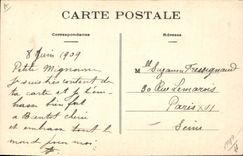 CARTE POSTALE
Correspondance
Adresse
8 Juin 1909
Petite Mignonne
Je suis très content de
ta carte et je t'em-
brasse bien fort
a Bientot cherie
et embrasse tout le
monde pour moi
Mlle Suzanne Fressignaud
30 Rue Lemarois
Paris XVI
Seine